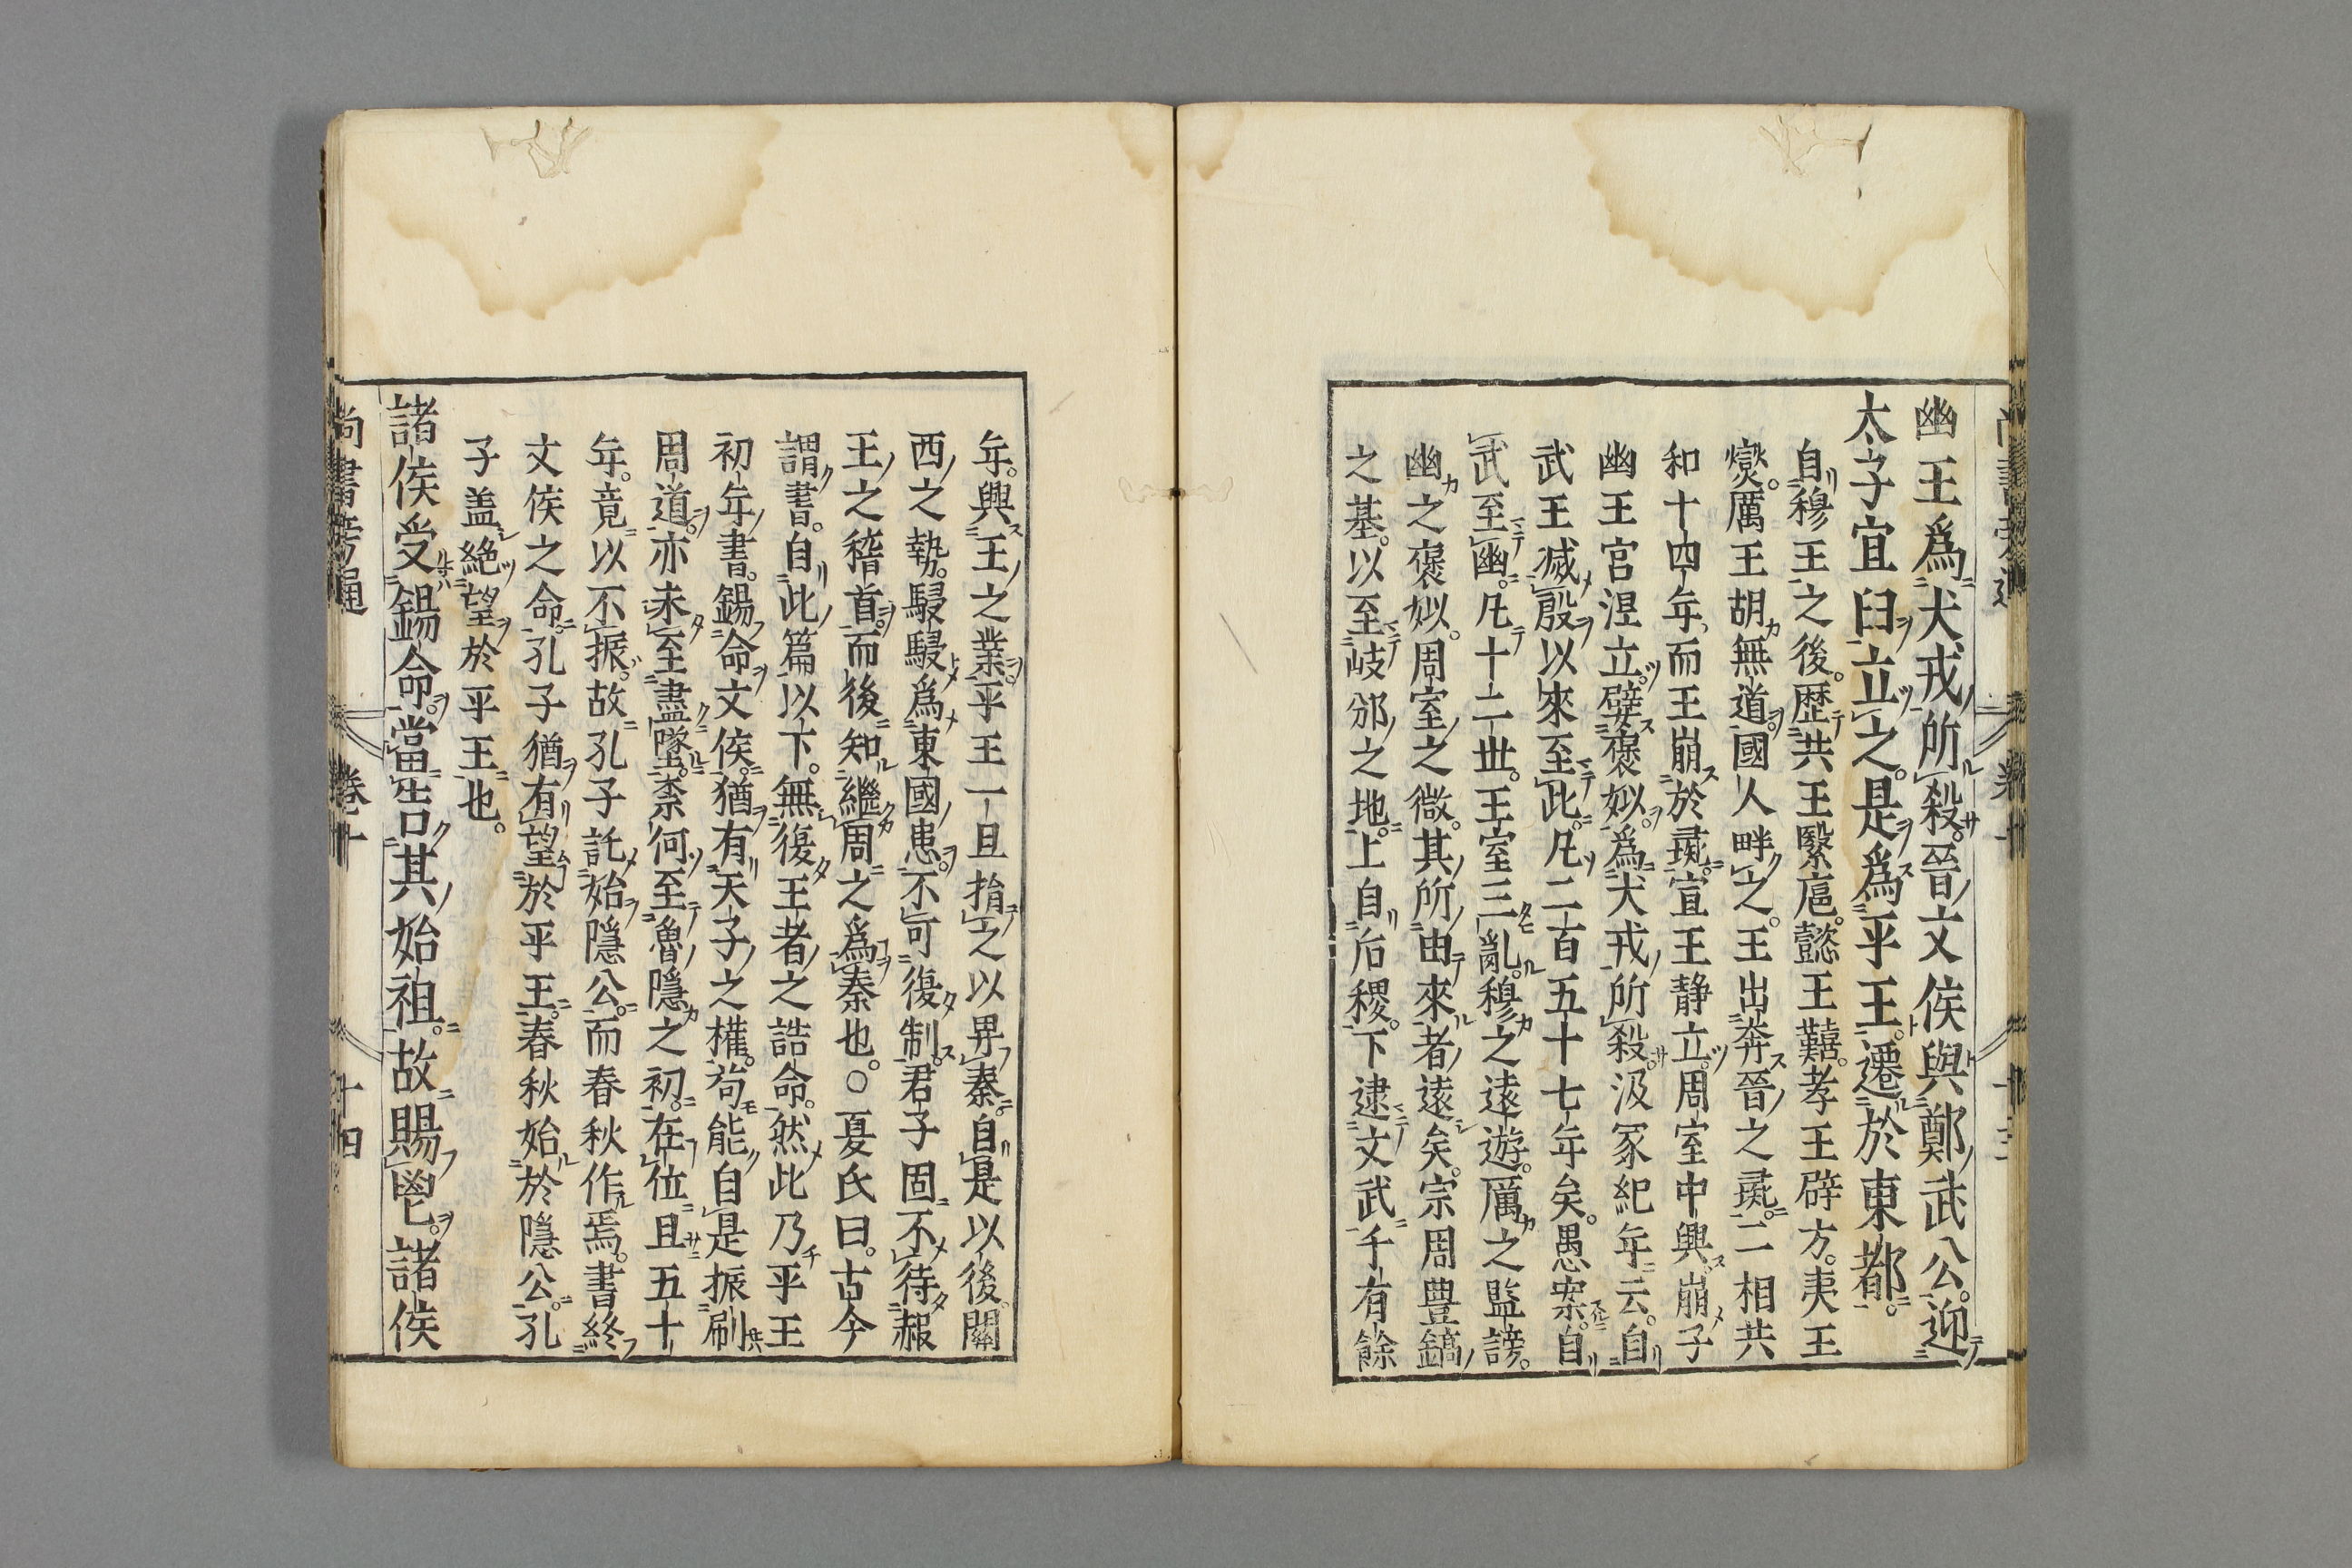 幽王爲犬戎所殺晉文侯與鄭武公迎
太子宜臼立之是爲平王遷於東都
自穆王之後歷共王繄扈懿王囏孝王辟方夷王
燮厲王胡無道國人畔之王出奔晉之彘二相共
和十四年而王崩於彘宣王静立周室中興崩子
幽王宮涅立嬖褒姒爲犬戎所殺汲冢紀年云自
武王滅殷以來至此凡二百五十七年矣愚案自
武至幽凡十二世王室三亂穆之遠遊厲之監謗
幽之褒姒周室之微其所由來者遠矣宗周豊鎬
之基以至岐邠之地上自后稷下逮文武千有餘
年興王之業平王一旦捐之以畀秦自是以後關
西之埶駸駸爲東國患不可復制君子固不待赧
王之稽首而後知繼周之爲秦也○夏氏曰古今
謂書自此篇以下無復王者之誥命然此乃平王
初年書錫命文侯猶有天子之權苟能自是振刷
周道亦未至盡墜柰何至魯隱之初在位且五十
年竟以不振故孔子託始隱公而春秋作焉書終
文侯之命孔子猶有望於平王春秋始於隱公孔
子盖絶望於平王也
諸侯受錫命當告其始祖故賜鬯諸侯
尚書旁通 卷十 十四